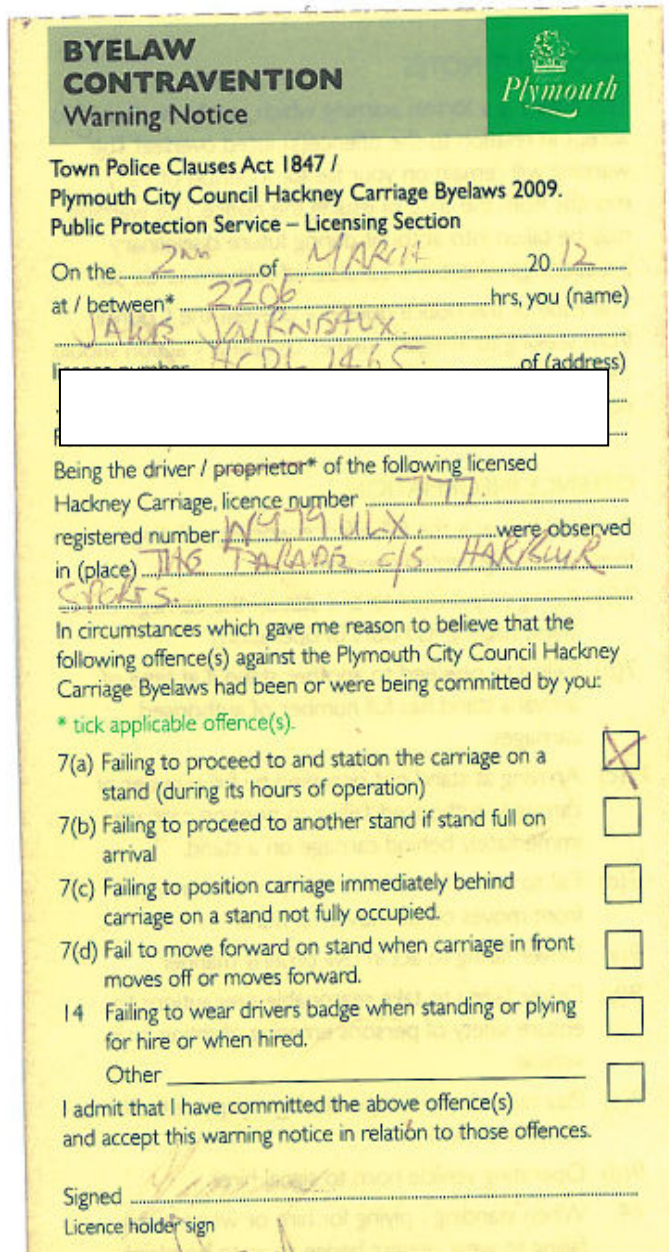 BYELAW
CONTRAVENTION
Warning Notice
Plymouth
Town Police Clauses Act 1847 /
Plymouth City Council Hackney Carriage Byelaws 2009.
Public Protection Service – Licensing Section
On the 2nd of MARCH 2012
at / between* 2206 hrs, you (name)
licence number HCDL 1465 of (address)
Being the driver / proprietor* of the following licensed
Hackney Carriage, licence number 777.
registered number W979 ULX were observed
in (place) THE PARADE o/s HARBOUR
SPORTS.
In circumstances which gave me reason to believe that the
following offence(s) against the Plymouth City Council Hackney
Carriage Byelaws had been or were being committed by you:
* tick applicable offence(s).
7(a) Failing to proceed to and station the carriage on a
stand (during its hours of operation) X
7(b) Failing to proceed to another stand if stand full on
arrival
7(c) Failing to position carriage immediately behind
carriage on a stand not fully occupied.
7(d) Fail to move forward on stand when carriage in front
moves off or moves forward.
14 Failing to wear drivers badge when standing or plying
for hire or when hired.
Other
I admit that I have committed the above offence(s)
and accept this warning notice in relation to those offences.
Signed
Licence holder sign